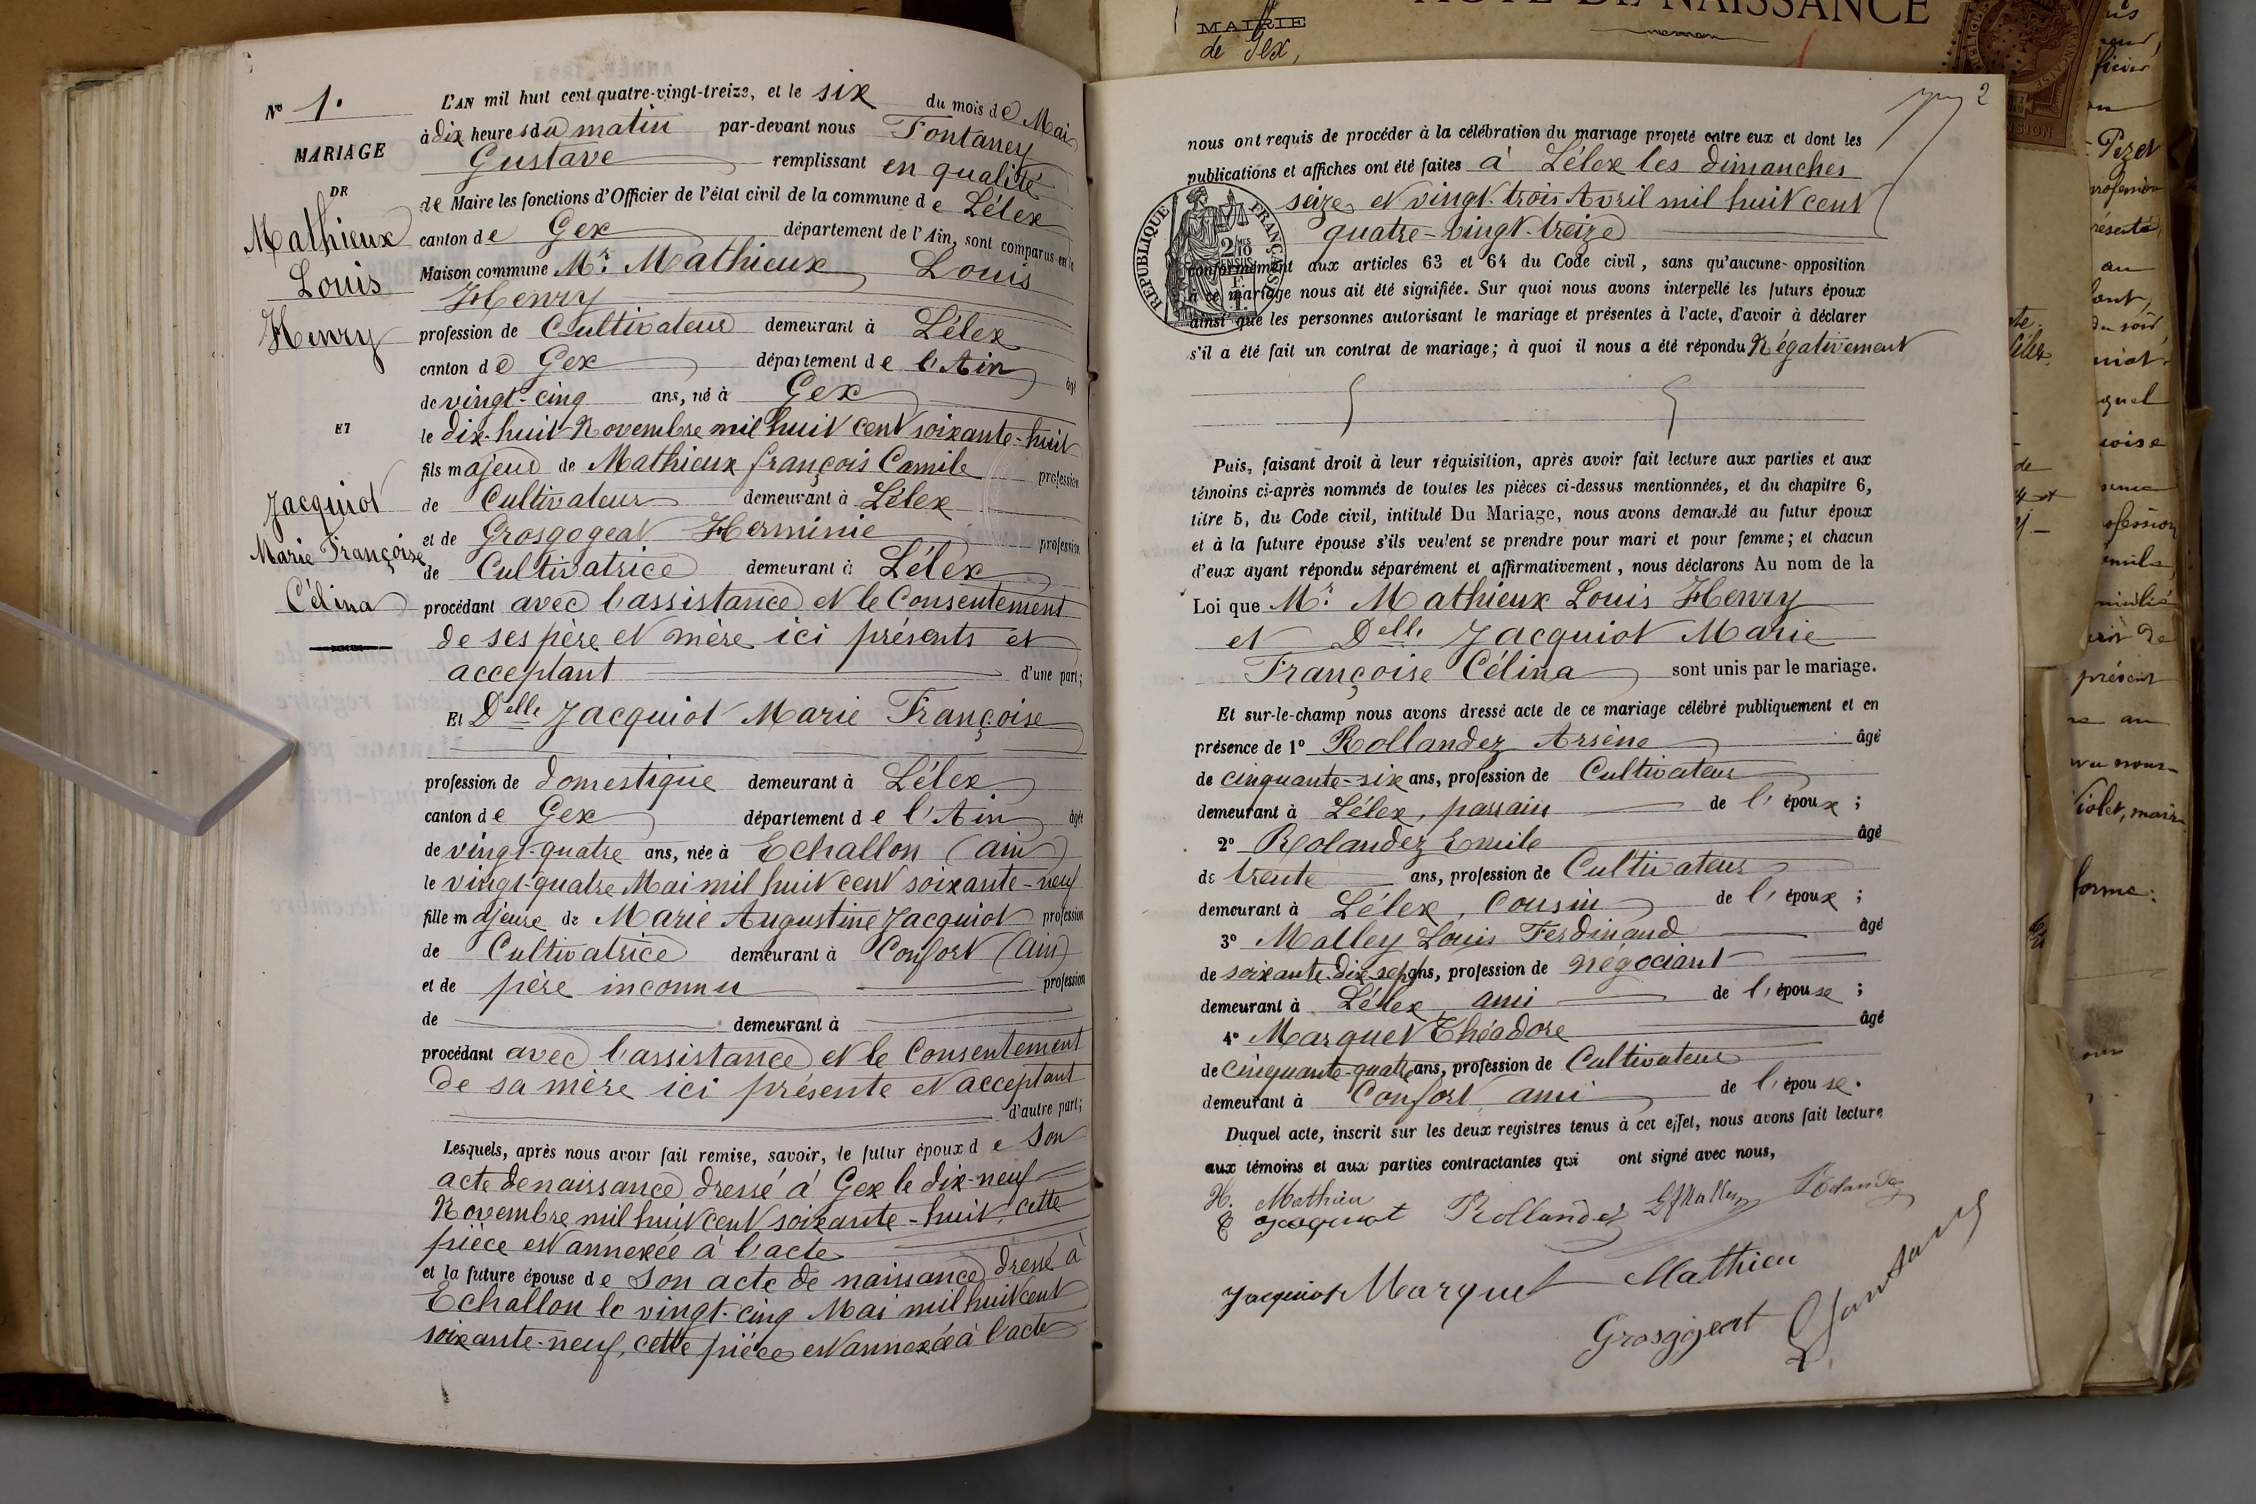 Nº 1.
MARIAGE
DE
Mathieux
Louis
Henry
ET
Jacquiot
Marie Françoise
Célina
L'AN mil huit cent quatre-vingt-treize, et le six du mois de Mai
à dix heures du matin par-devant nous Fontaney
Gustave remplissant en qualité
de Maire les fonctions d'Officier de l'état civil de la commune de Lélex
canton de Gex département de l'Ain, sont comparus en la
Maison commune Mr. Mathieux Louis
Henry
profession de Cultivateur demeurant à Lélex
canton de Gex département de l'Ain âgé
de vingt-cinq ans, né à Gex
le dix-huit Novembre mil huit cent soixante-huit
fils majeur de Mathieux françois Camile profession
de Cultivateur demeurant à Lélex
et de Grosgogeat Herminie profession
de Cultivatrice demeurant à Lélex
procédant avec l'assistance et le Consentement
de ses père et mère ici présents et
acceptant d'une part;
Et Delle Jacquiot Marie Françoise
profession de domestique demeurant à Lélex
canton de Gex département de l'Ain âgée
de vingt-quatre ans, née à Echallon (ain)
le vingt-quatre Mai mil huit cent soixante-neuf
fille majeure de Marie Augustine Jacquiot profession
de Cultivatrice demeurant à Confort (ain)
et de père inconnu profession
de demeurant à
procédant avec l'assistance et le Consentement
de sa mère ici présente et acceptant
d'autre part;
Lesquels, après nous avoir fait remise, savoir, le futur époux de Son
acte de naissance dressé à Gex le dix-neuf
Novembre mil huit cent soixante-huit, cette
pièce est annexée à l'acte
et la future épouse de Son acte de naissance dressé à
Echallon le vingt-cinq Mai mil huit cent
soixante-neuf, cette pièce est annexée à l'acte
MAIRIE
de Gex,
ACTE DE NAISSANCE
2
nous ont requis de procéder à la célébration du mariage projeté entre eux et dont les
publications et affiches ont été faites à Lélex les dimanches
seize et vingt-trois Avril mil huit cent
quatre-vingt-treize
RÉPUBLIQUE FRANÇAISE
conformément aux articles 63 et 64 du Code civil, sans qu'aucune opposition
à ce mariage nous ait été signifiée. Sur quoi nous avons interpellé les futurs époux
ainsi que les personnes autorisant le mariage et présentes à l'acte, d'avoir à déclarer
s'il a été fait un contrat de mariage; à quoi il nous a été répondu Négativement
Puis, faisant droit à leur réquisition, après avoir fait lecture aux parties et aux
témoins ci-après nommés de toutes les pièces ci-dessus mentionnées, et du chapitre 6,
titre 5, du Code civil, intitulé Du Mariage, nous avons demandé au futur époux
et à la future épouse s'ils veulent se prendre pour mari et pour femme; et chacun
d'eux ayant répondu séparément et affirmativement, nous déclarons Au nom de la
Loi que Mr. Mathieux Louis Henry
et Delle Jacquiot Marie
Françoise Célina sont unis par le mariage.
Et sur-le-champ nous avons dressé acte de ce mariage célébré publiquement et en
présence de 1º Rollandez Arsène âgé
de cinquante-six ans, profession de Cultivateur
demeurant à Lélex, parrain de l'époux;
2º Rolandez Emile âgé
de trente ans, profession de Cultivateur
demeurant à Lélex, Cousin de l'époux;
3º Malley Louis Ferdinand âgé
de soixante-dix-sept ans, profession de négociant
demeurant à Lélex ami de l'épouse;
4º Marquet Théodore âgé
de Cinquante-quatre ans, profession de Cultivateur
demeurant à Confort ami de l'épouse.
Duquel acte, inscrit sur les deux registres tenus à cet effet, nous avons fait lecture
aux témoins et aux parties contractantes qui ont signé avec nous,
H. Mathieu
C Jacquiot Rollandez Rolandez
Jacquiot Marquet Mathieu
Grosgogeat
Pezet
profession
Violet, maire
forme: